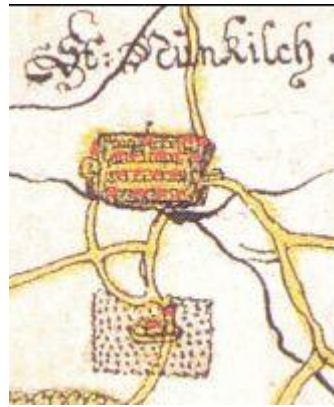 St: Nünkilch.